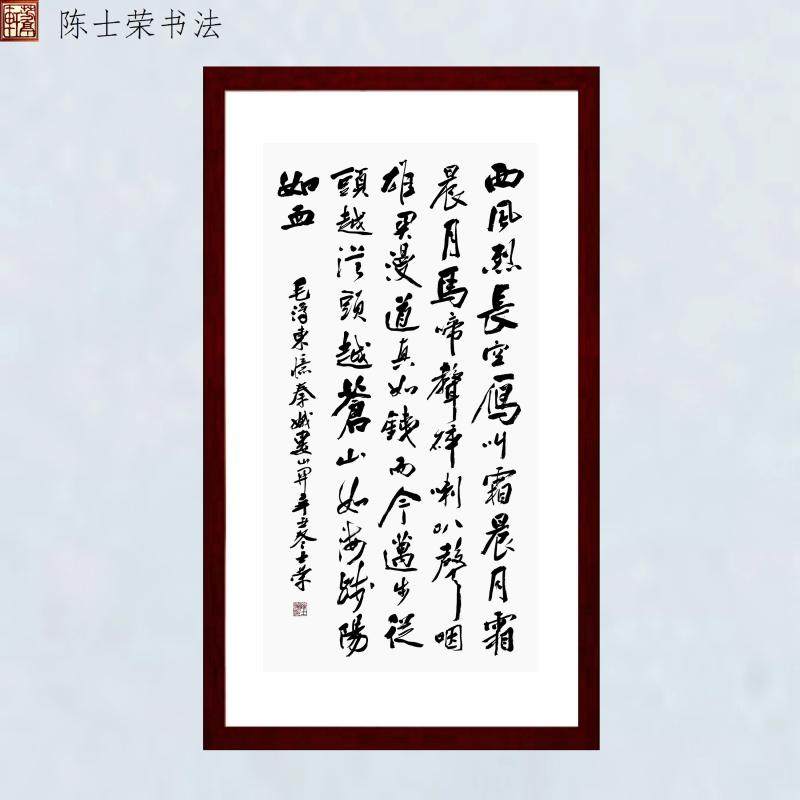 陈士荣书法
西風烈長空雁叫霜晨月霜
晨月馬啼聲碎喇叭聲咽
雄関漫道真如鐵而今邁步從
頭越從頭越蒼山如海殘陽
如血
毛澤東憶秦娥婁山関辛丑冬士榮